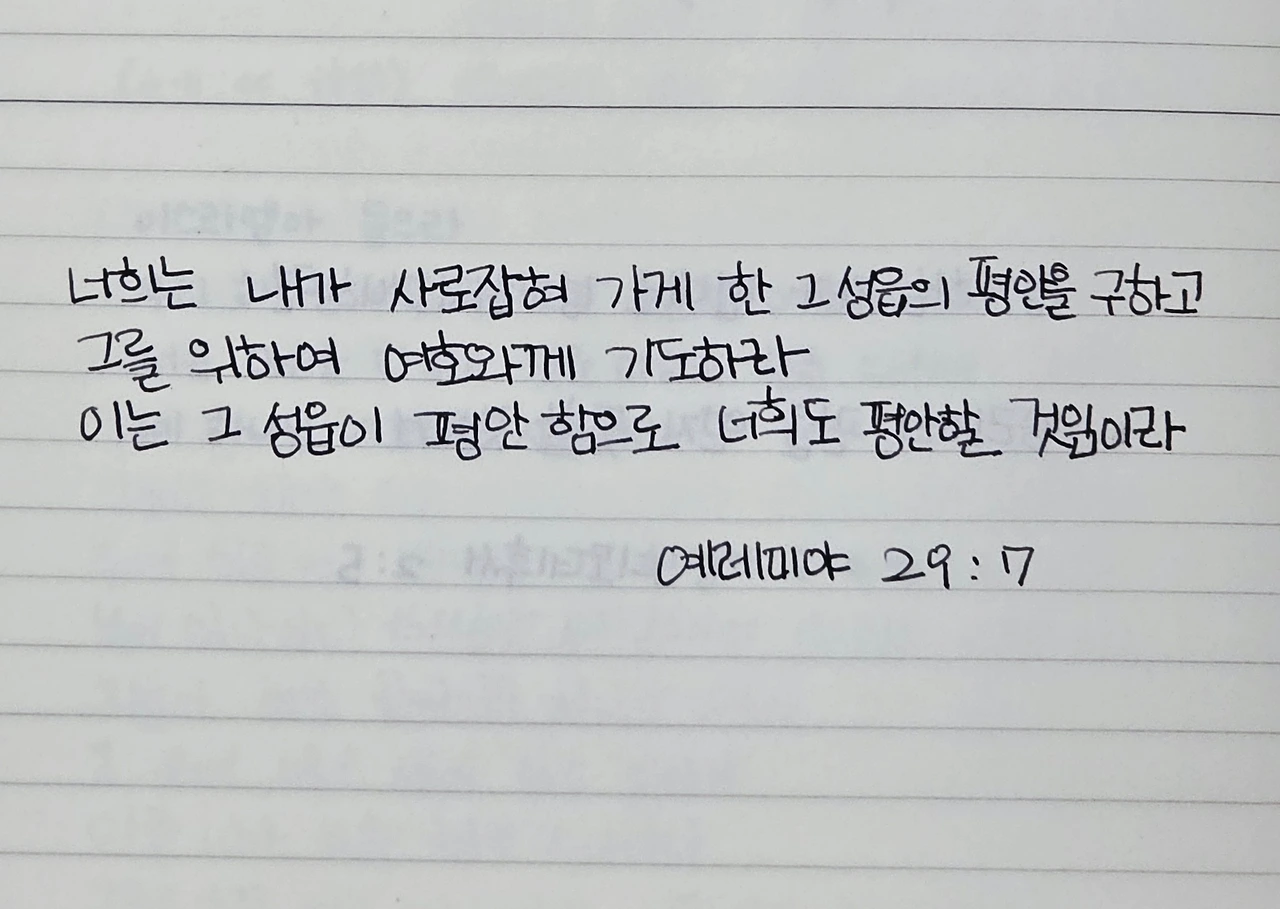 너희는 내가 사로잡혀 가게 한 그 성읍의 평안을 구하고
그를 위하여 여호와께 기도하라
이는 그 성읍이 평안 함으로 너희도 평안할 것임이라
예레미야 29:7